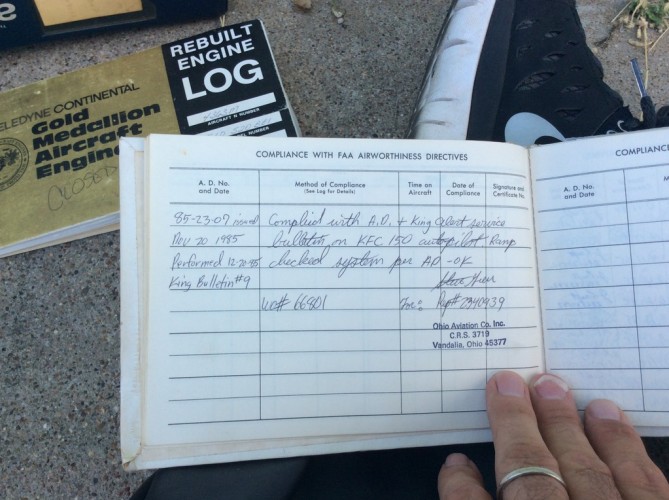 REBUILT
ENGINE
LOG
AIRCRAFT N NUMBER
TELEDYNE CONTINENTAL
Gold
Medallion
Aircraft
Engine
CLOSED
COMPLIANCE WITH FAA AIRWORTHINESS DIRECTIVES
A. D. No. and Date
Method of Compliance (See Log for Details)
Time on Aircraft
Date of Compliance
Signature and Certificate No.
85-23-07 issued Complied with A.D. + King Alert service
Nov 20 1985 bulletin on KFC 150 autopilot Ramp
Performed 12-20-85 checked system per AD - OK
King Bulletin #9
wo# 66801 For: Rep# 2940939
Ohio Aviation Co. Inc.
C.R.S. 3719
Vandalia, Ohio 45377
COMPLIANC
A. D. No. and Date